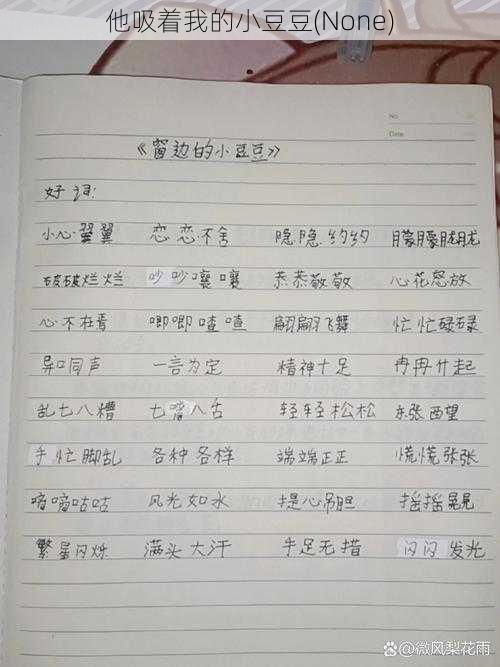 他吸着我的小豆豆(None)
No
Date
《窗边的小豆豆》
好词:
小心翼翼 恋恋不舍 隐隐约约 朦朦胧胧
破破烂烂 吵吵嚷嚷 恭恭敬敬 心花怒放
心不在焉 唧唧喳喳 翩翩飞舞 忙忙碌碌
异口同声 一言为定 精神十足 冉冉升起
乱七八糟 七嘴八舌 轻轻松松 东张西望
手忙脚乱 各种各样 端端正正 慌慌张张
嘀嘀咕咕 风光如水 提心吊胆 摇摇晃晃
繁星闪烁 满头大汗 手足无措 闪闪发光
@微风梨花雨